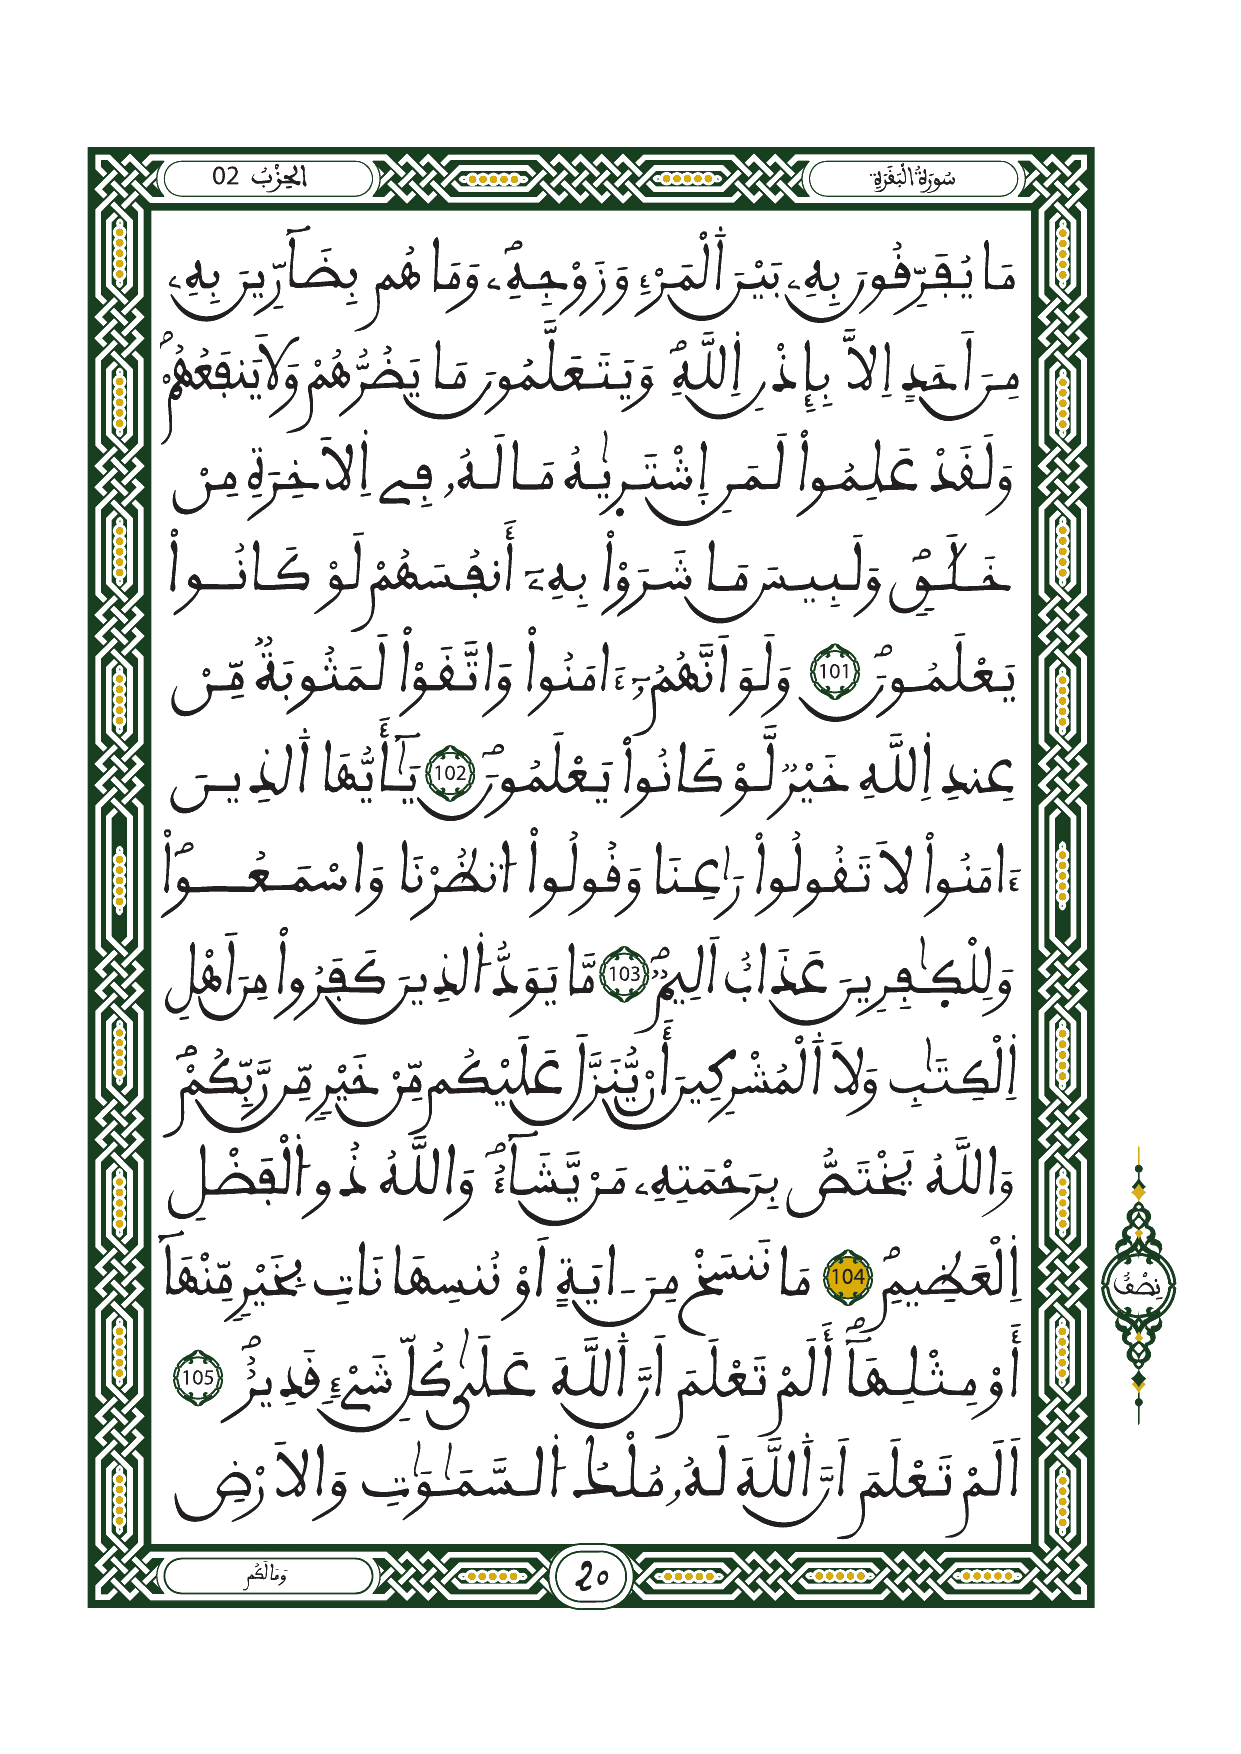 سُورَةُ الْبَقَرَةِ
الْحِزْبُ 02
مَا يُفَرِّقُونَ بِهِۦ بَيْنَ اَ۬لْمَرْءِ وَزَوْجِهِۦۖ وَمَا هُم بِضَآرِّينَ بِهِۦ
مِنَ اَحَدٍ اِلَّا بِإِذْنِ اِ۬للَّهِۖ وَيَتَعَلَّمُونَ مَا يَضُرُّهُمْ وَلَا يَنفَعُهُمْۖ
وَلَقَدْ عَلِمُواْ لَمَنِ اِ۪شْتَر۪يٰهُ مَا لَهُۥ فِے اِ۬لَاخِرَةِ مِنْ
خَلَٰقٖۖ وَلَبِيسَ مَا شَرَوْاْ بِهِۦٓ أَنفُسَهُمْ لَوْ كَانُواْ
يَعْلَمُونَۖ 101 وَلَوَ اَنَّهُمُۥٓ ءَامَنُواْ وَاتَّقَوْاْ لَمَثُوبَةٞ مِّنْ
عِندِ اِ۬للَّهِ خَيْرٞ لَّوْ كَانُواْ يَعْلَمُونَۖ 102 يَٰٓأَيُّهَا اَ۬لذِينَ
ءَامَنُواْ لَا تَقُولُواْ رَٰعِنَا وَقُولُواْ اُ۟نظُرْنَا وَاسْمَعُواْۖ
وَلِلْكٰ۪فِرِينَ عَذَابٌ اَلِيمٞۖ 103 مَّا يَوَدُّ اُ۬لذِينَ كَفَرُواْ مِنَ اَهْلِ
اِ۬لْكِتَٰبِ وَلَا اَ۬لْمُشْرِكِينَ أَنْ يُّنَزَّلَ عَلَيْكُم مِّنْ خَيْرٖ مِّن رَّبِّكُمْۖ
وَاللَّهُ يَخْتَصُّ بِرَحْمَتِهِۦ مَنْ يَّشَآءُۖ وَاللَّهُ ذُو اُ۬لْفَضْلِ
اِ۬لْعَظِيمِۖ 104 مَا نَنسَخْ مِنَ اٰيَةٍ اَوْ نُنسِهَا نَاتِ بِخَيْرٖ مِّنْهَآ
أَوْ مِثْلِهَآۖ أَلَمْ تَعْلَمَ اَنَّ اَ۬للَّهَ عَلَىٰ كُلِّ شَےْءٖ قَدِيرٌۖ 105
اَلَمْ تَعْلَمَ اَنَّ اَ۬للَّهَ لَهُۥ مُلْكُ اُ۬لسَّمَٰوَٰتِ وَالَارْضِ
نِصْفُ
وَمَا لَكُم
20